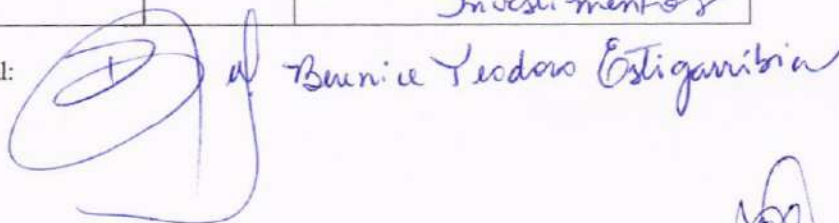 Investimentos
l:
Berenice Teodoro Estigarríbia